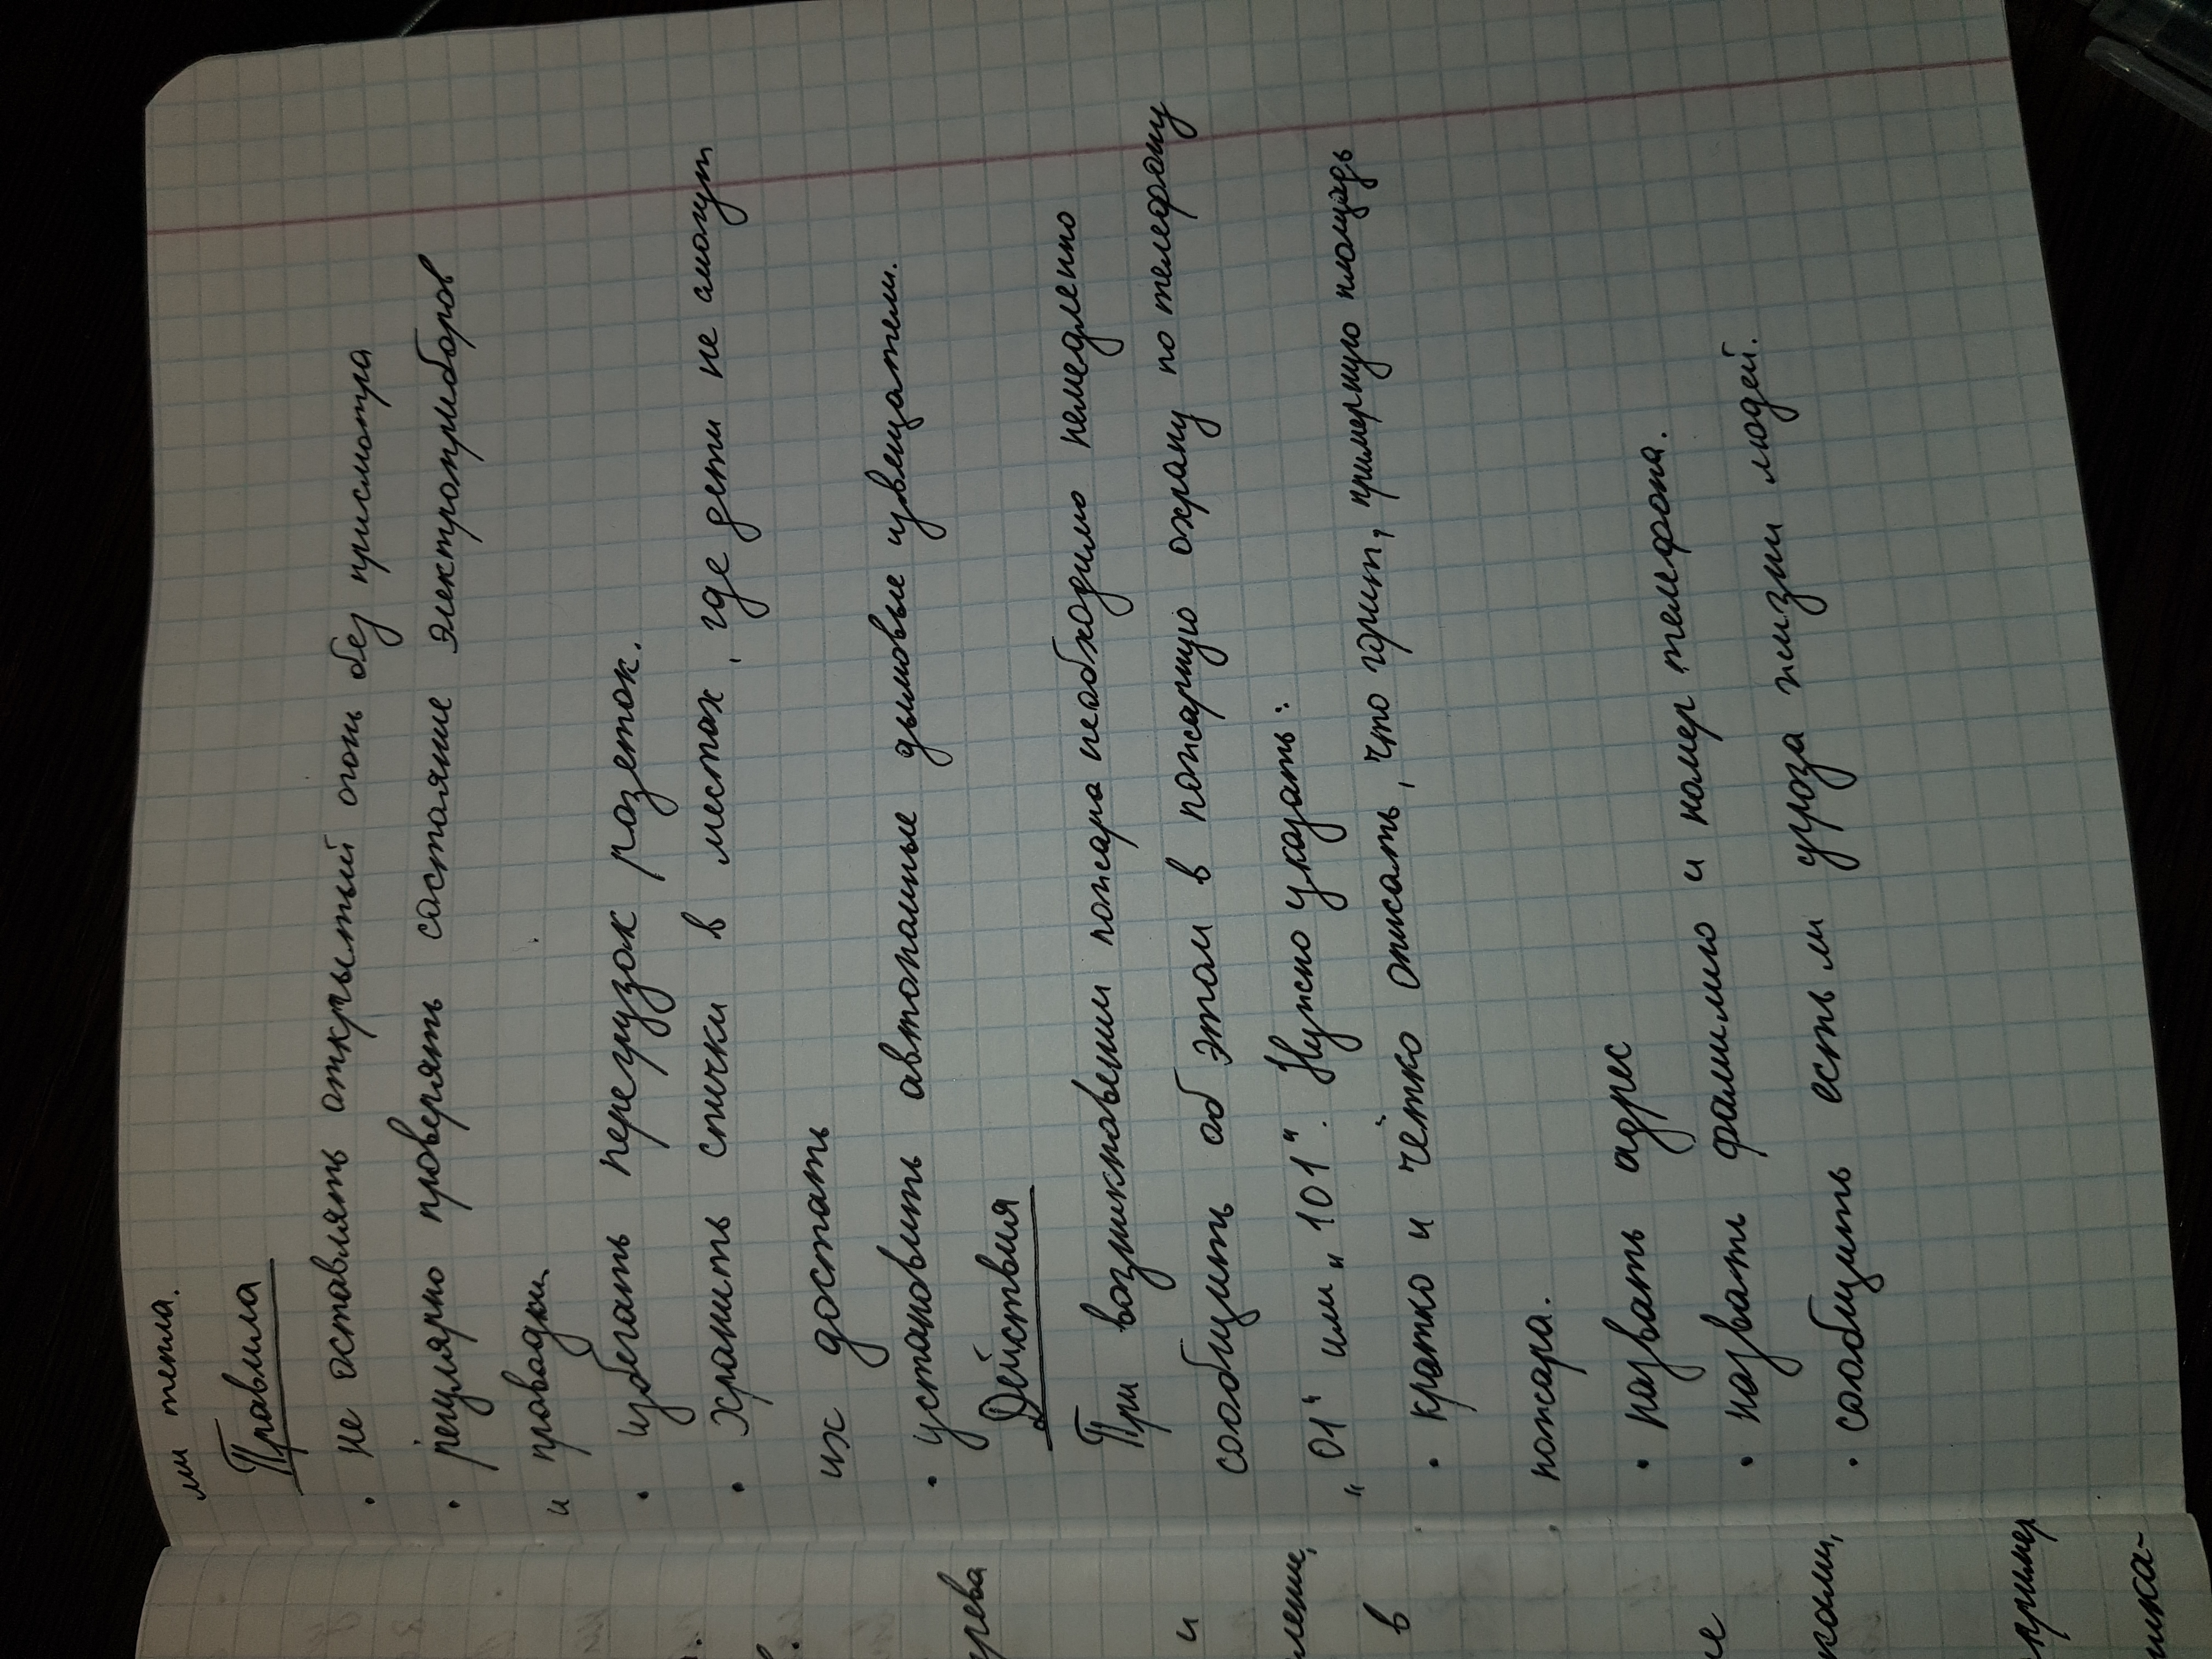 ми тепла.
Правила
• не оставлять открытый огонь без присмотра
• регулярно проверять состояние электроприборов
и проводки
• избегать перегрузок розеток.
• хранить спички в местах, где дети не смогут
их достать
• установить автономные дымовые извещатели.
Действия
При возникновении пожара необходимо немедленно
сообщить об этом в пожарную охрану по телефону
„01“ или „101“. Нужно указать:
• кратко и чётко описать, что горит, примерную площадь
пожара.
• назвать адрес
• назвать фамилию и номер телефона.
• сообщить есть ли угроза жизни людей.